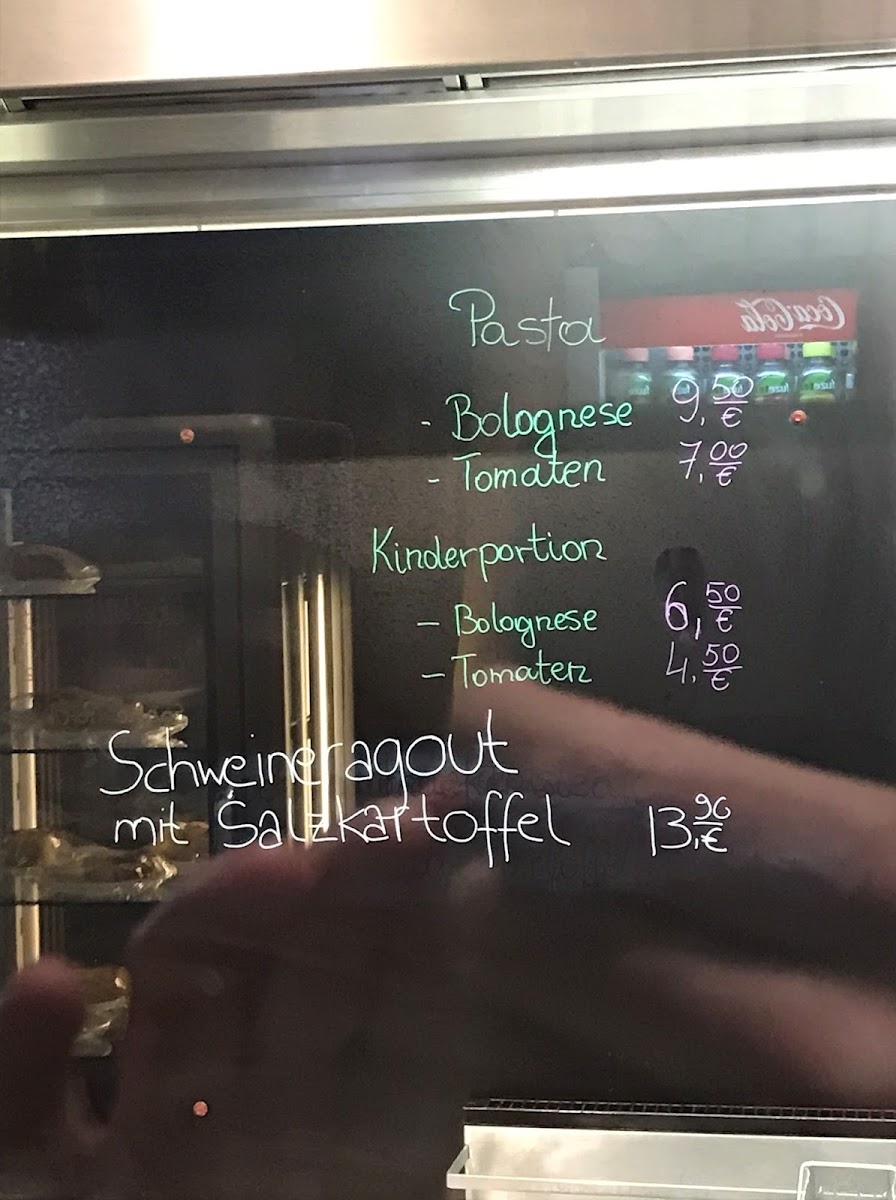 Coca-Cola
Pasta
- Bolognese 9,50 €
- Tomaten 7,00 €
Kinderportion
- Bolognese 6,50 €
- Tomaten 4,50 €
Schweineragout
mit Salzkartoffel 13,90 €